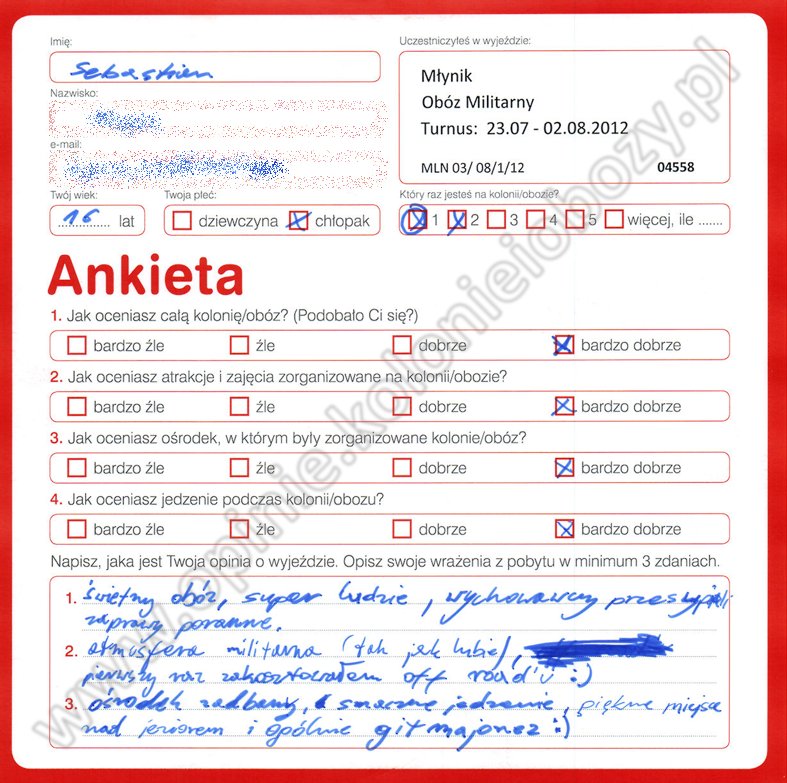 Imię:
Sebastian
Nazwisko:
e-mail:
Twój wiek:
16 lat
Twoja płeć:
dziewczyna chłopak
Uczestniczyłeś w wyjeździe:
Młynik
Obóz Militarny
Turnus: 23.07 - 02.08.2012
MLN 03/ 08/1/12 04558
Który raz jesteś na kolonii/obozie?
1 2 3 4 5 więcej, ile .......
Ankieta
1. Jak oceniasz całą kolonię/obóz? (Podobało Ci się?)
bardzo źle źle dobrze bardzo dobrze
2. Jak oceniasz atrakcje i zajęcia zorganizowane na kolonii/obozie?
bardzo źle źle dobrze bardzo dobrze
3. Jak oceniasz ośrodek, w którym były zorganizowane kolonie/obóz?
bardzo źle źle dobrze bardzo dobrze
4. Jak oceniasz jedzenie podczas kolonii/obozu?
bardzo źle źle dobrze bardzo dobrze
Napisz, jaka jest Twoja opinia o wyjeździe. Opisz swoje wrażenia z pobytu w minimum 3 zdaniach.
1. świetny obóz, super ludzie, wychowawcy przesypiali
zaprawy poranne.
2. atmosfera militarna (tak jak lubię),
pierwszy raz zakosztowałem off road'u :)
3. ośrodek zadbany, smaczne jedzenie, piękne miejsce
nad jeziorem i ogólnie git majonez :)
www.opinie.kolonieiobozy.pl